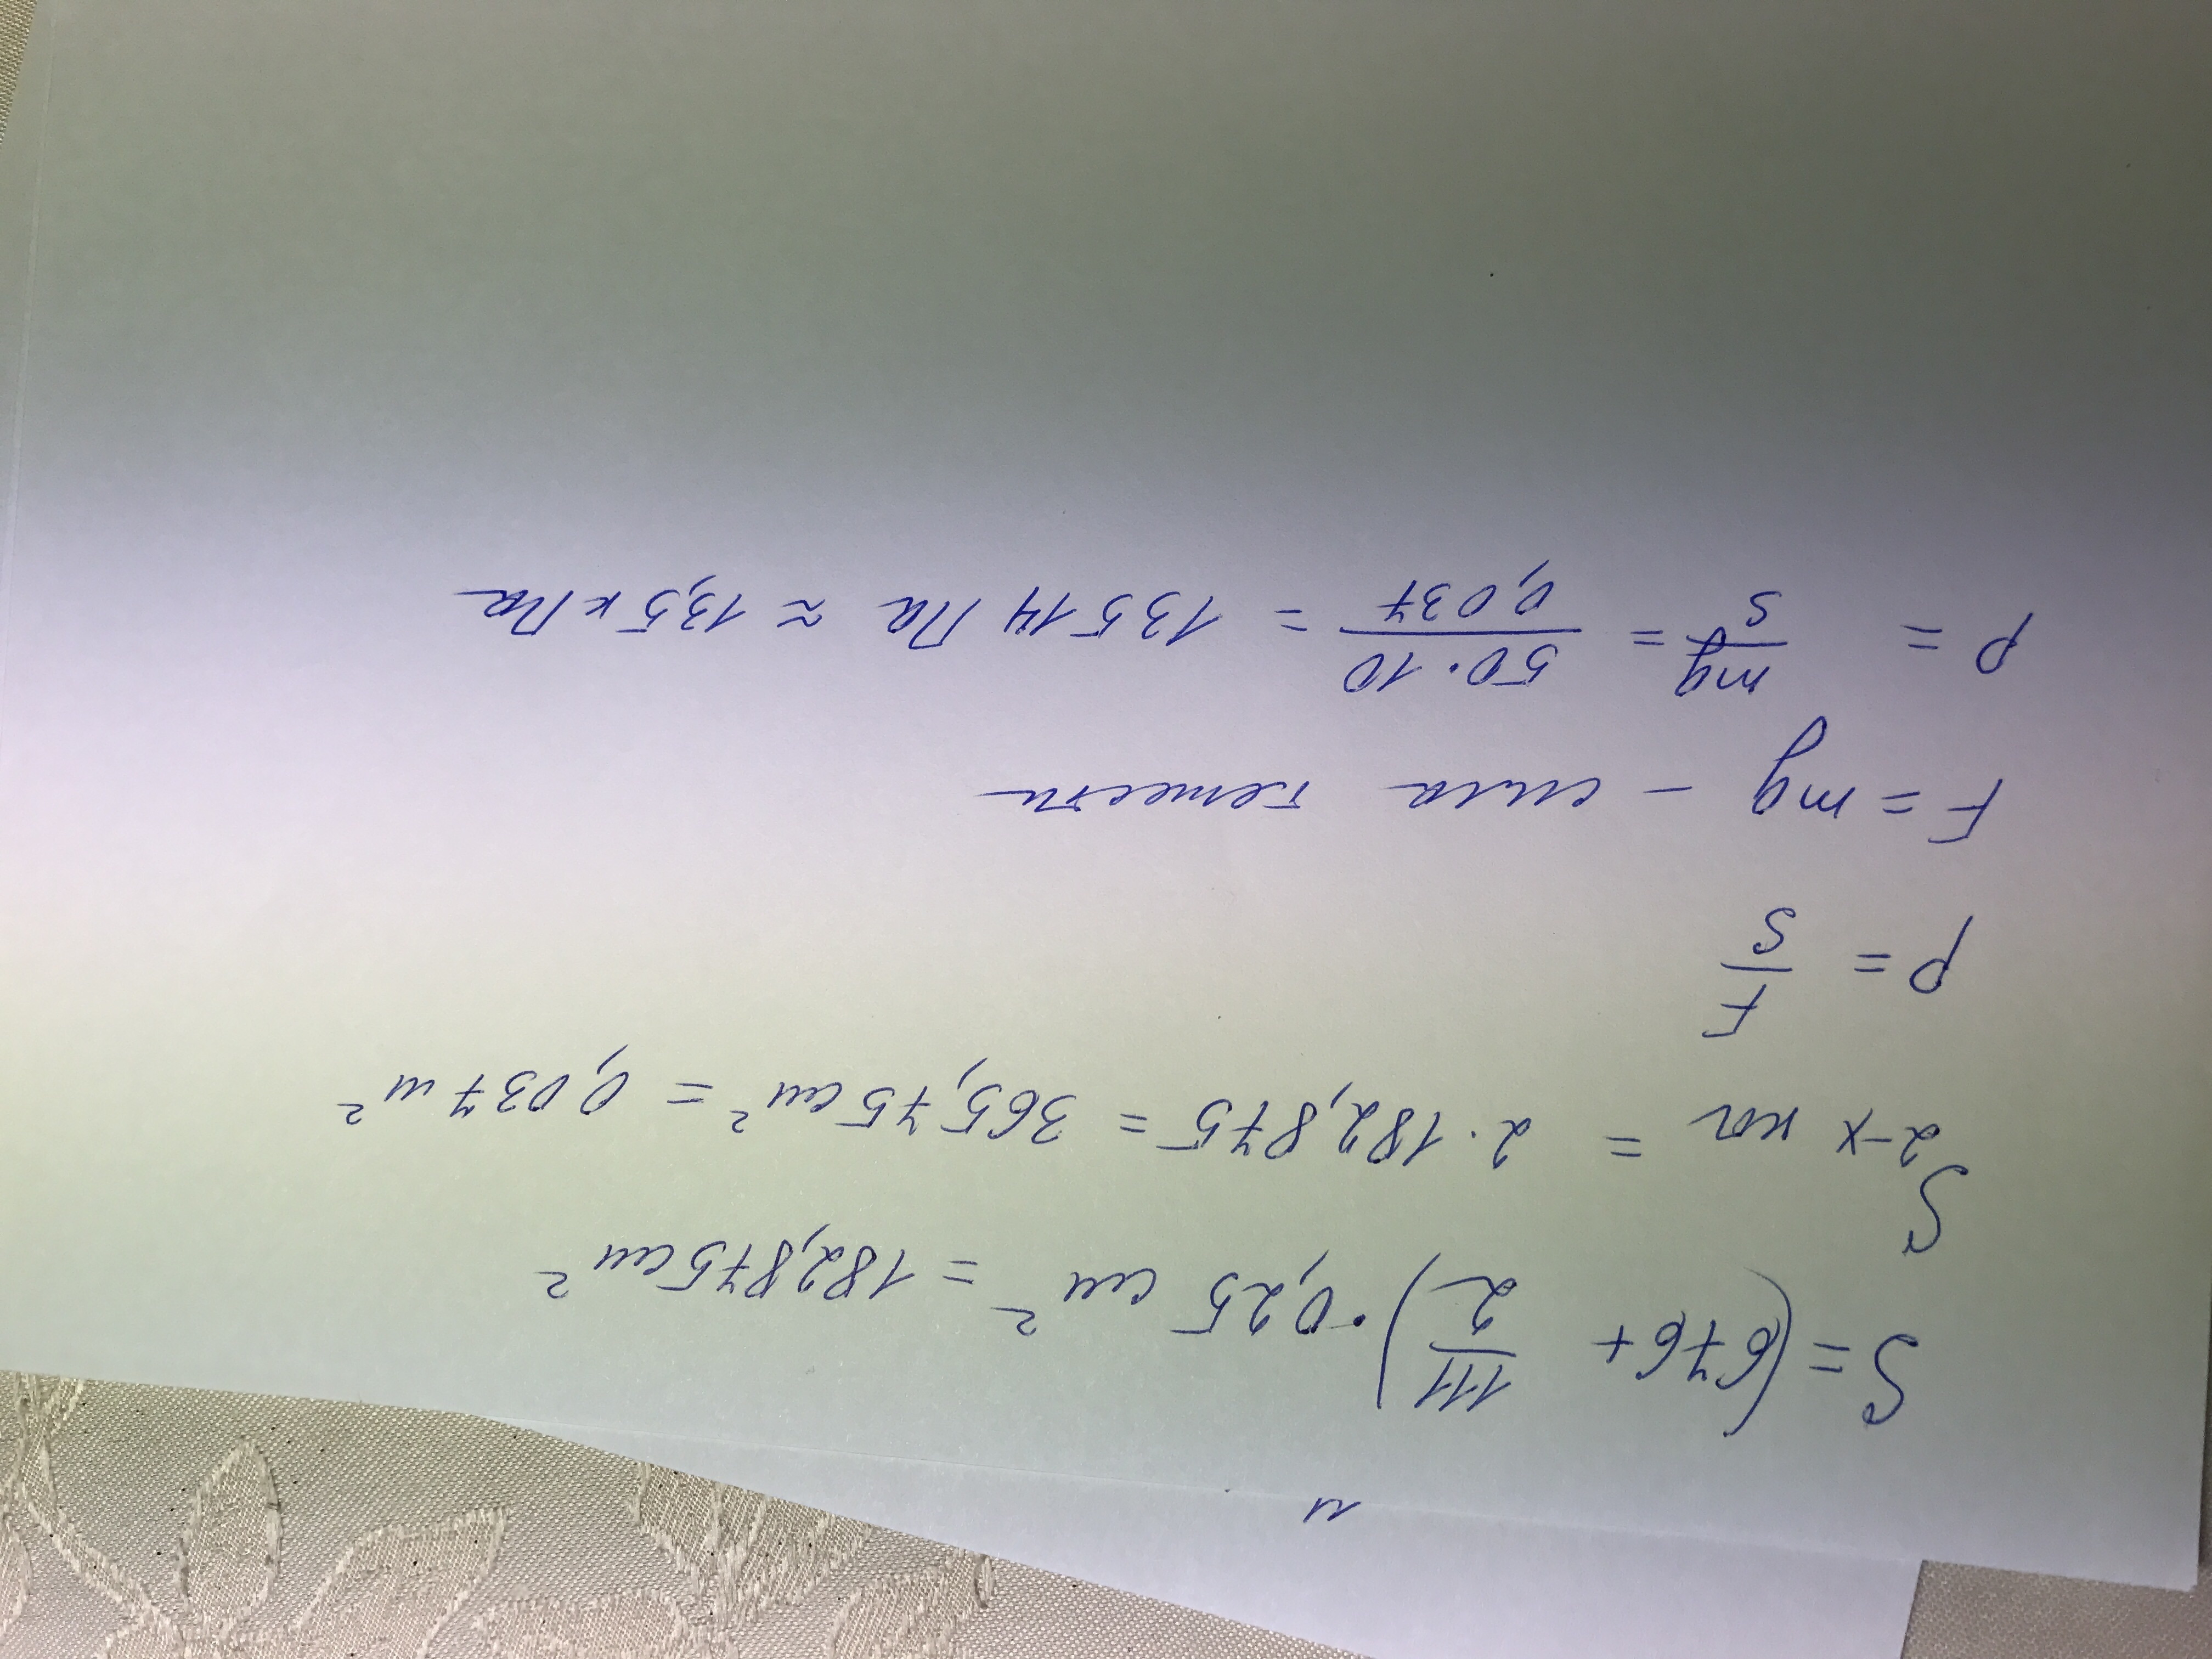 и
S = (676 + 111/2) · 0,25 см² = 182,875 см²
S 2-х ног = 2 · 182,875 = 365,75 см² = 0,037 м²
p = F/S
F = mg – сила тяжести
p = mg/S = 50·10/0,037 = 13514 Па ≈ 13,5 кПа